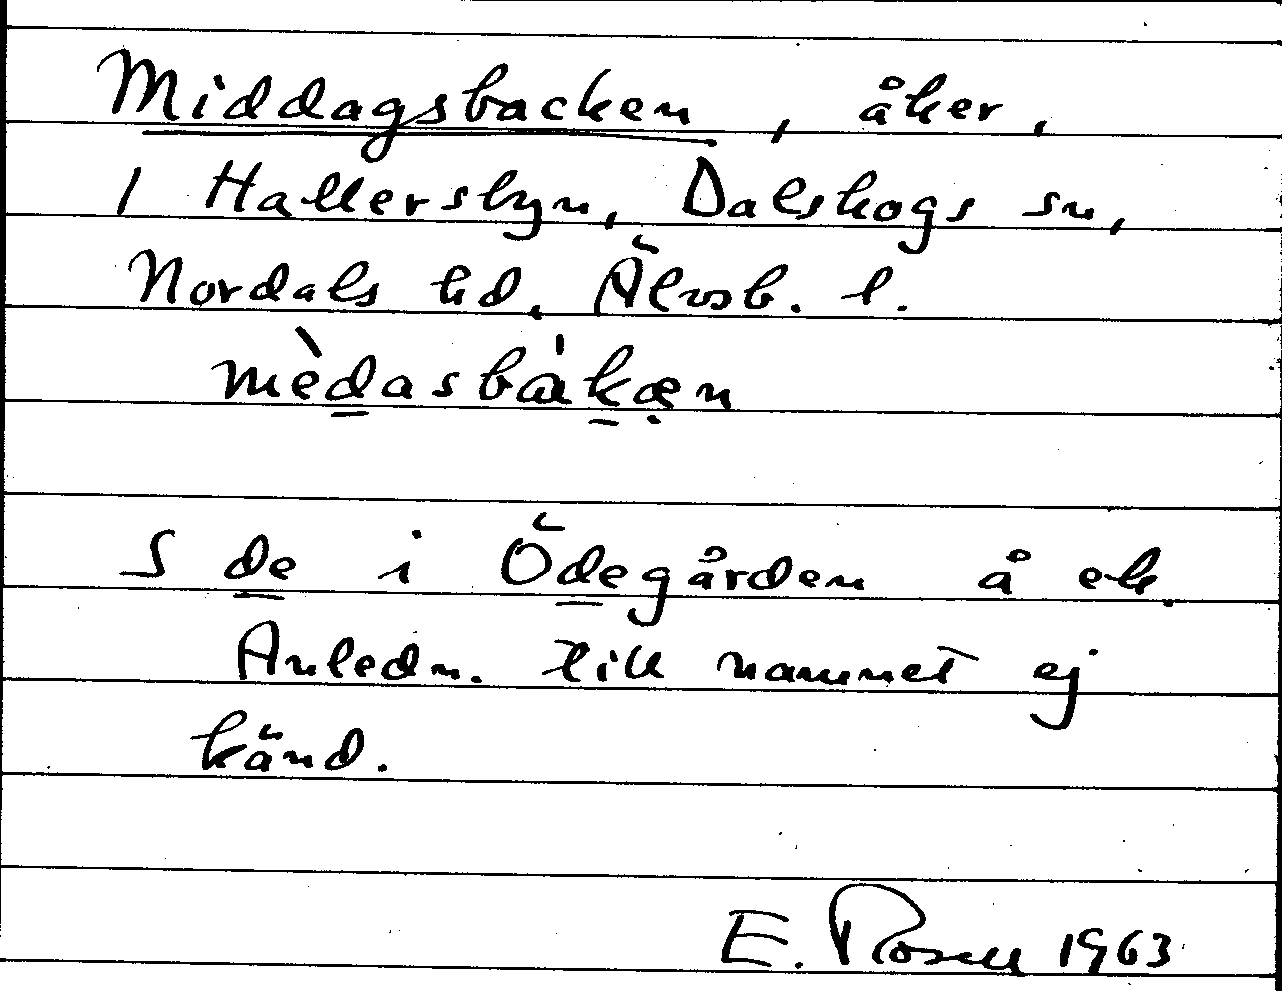 Middagsbacken, åker,
1 Hallersbyn, Dalskogs sn,
Nordals hd, Älvsb. l.
mèdasbàkæn
S de i Ödegården å ek.
Anledn. till namnet ej
känd.
E. Rosell 1963